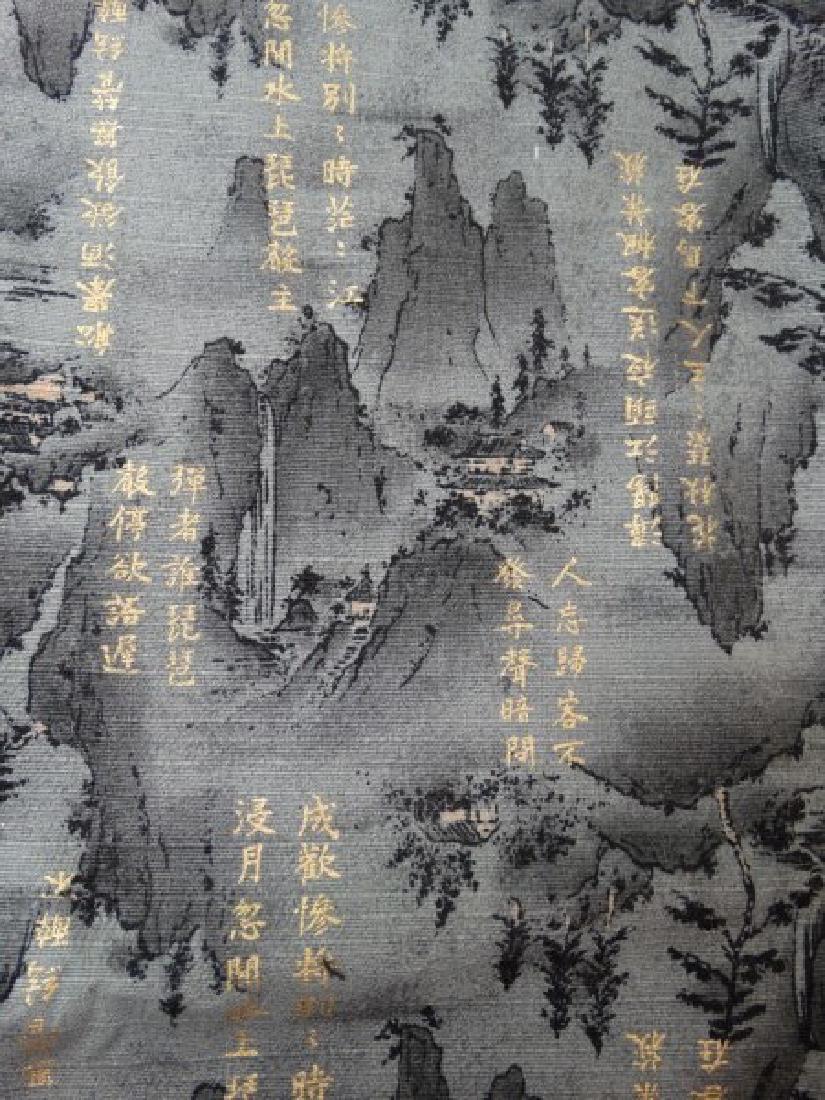 慘將別〻時茫〻江
忽聞水上琵琶聲主
船舉酒欲飲無管絃醉
潯陽江頭夜送客楓葉荻
花秋瑟〻主人下馬客在
彈者誰琵琶
聲停欲語遲
人忘歸客不
發尋聲暗問
成歡慘將別〻時
浸月忽聞水上琵
絃醉不
葉荻
客在